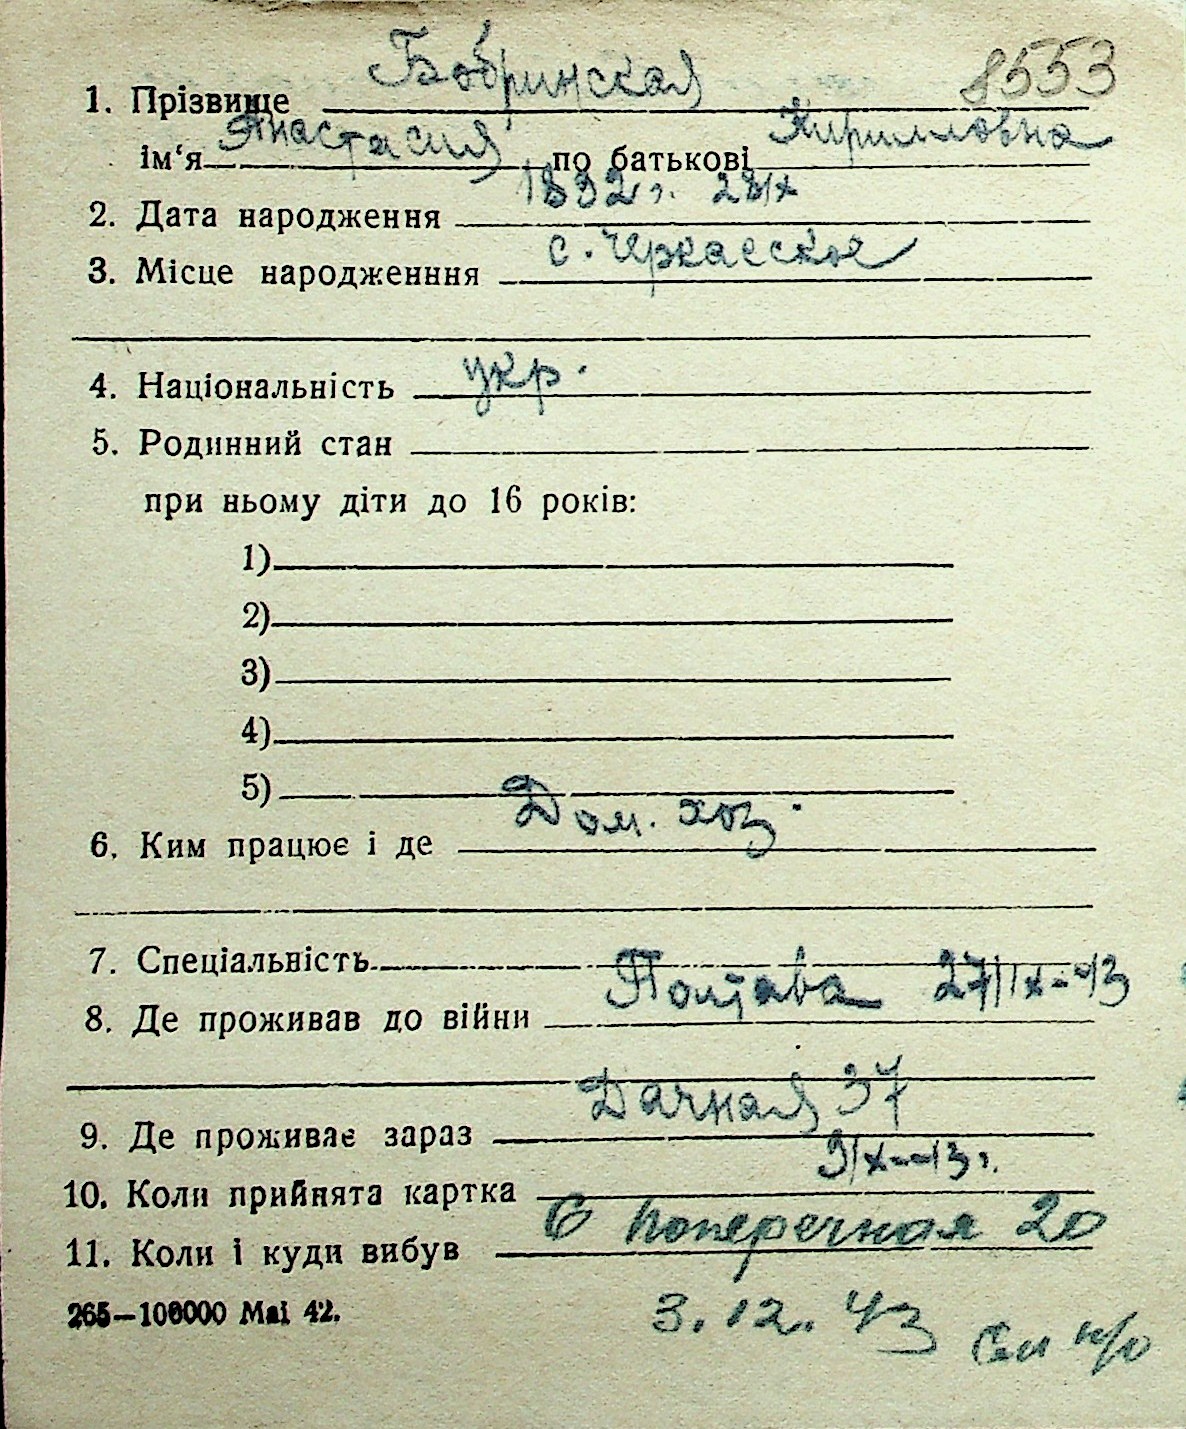 8553
1. Прізвище Бобринская
ім‘я Анастасия по батькові Кирилловна
2. Дата народження 1892 г. 28/X
3. Місце народженння с. Черкасское
4. Національність укр.
5. Родинний стан
при ньому діти до 16 років:
1)
2)
3)
4)
5)
6. Ким працює і де Дом. хоз.
7. Спеціальність
8. Де проживав до війни Полтава 27/IX-43
9. Де проживає зараз Дачная 37
10. Коли прийнята картка 9/X-43 г.
11. Коли і куди вибув 6 Поперечная 20
265—100000 Mai 42.
3. 12. 43
См н/о